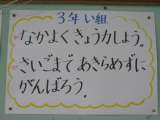 3年い組
なかよくきょうかしよう。
さいごまであきらめずに
がんばろう。